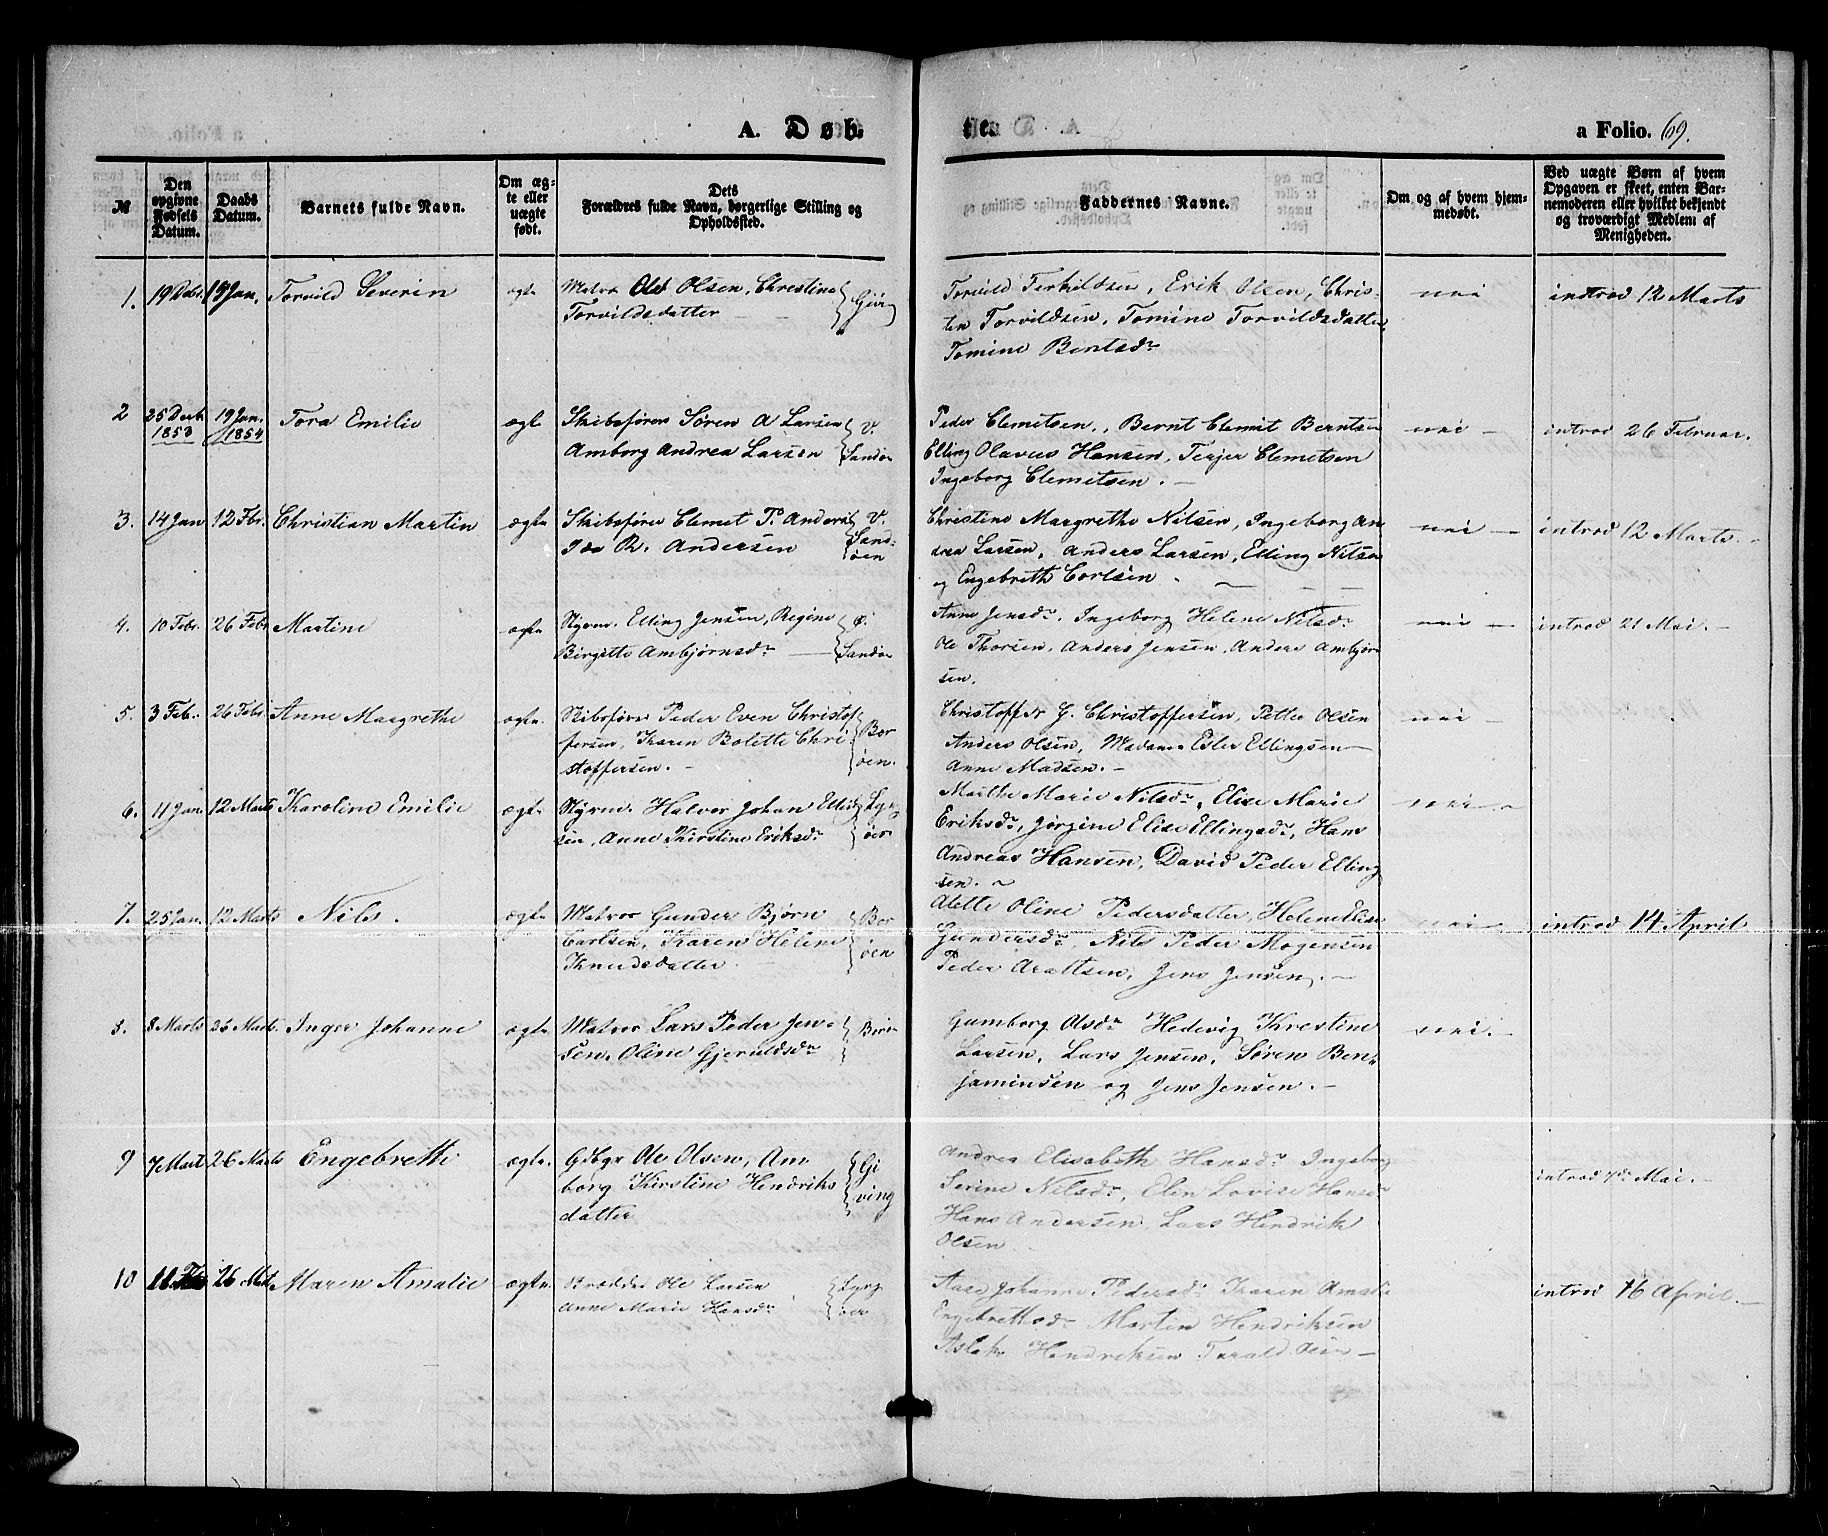 A. Døb.
a Folio. 69.
№
Den opgivne Fødsels Datum.
Daabs Datum.
Barnets fulde Navn.
Om ægte eller uægte født.
Dets Forældres fulde Navn, borgerlige Stilling og Opholdssted.
Faddernes Navne.
Om og af hvem hjemmedøbt.
Ved uægte Børn af hvem Opgaven er skeet, enten Barnemoderen eller hvilket bekjendt og troværdigt Medlem af Menigheden.
1. 19 Debr. Jan. Torvild Severin ægte Matros Ole Olsen, Christine
Torvildsdatter
Torvild Terkildsen, Erik Olsen, Chris-
ten Torvildsen, Tomine Torvildsdatter
Tomine Berntsdr
nei introd 12 Marts
2 25 Decb. 1853 19 Jan. 1854 Tora Emilie ægte Skibsfører Søren A Larsen
Amborg Andrea Larsen
V. Sandø
Peder Clemetsen, Bernt Clemet Berntsen
Elling Olavus Hansen, Terjer Clemetsen
Ingeborg Clemetsen.
nei introd 26 Februar.
3. 14 Jan 12 Fbr. Christian Martin ægte Skibsfører Clemet P. Anders
R. Andersen
V. Sandøen
Christine Margrethe Nilsen, Ingeborg An
drea Larsen, Anders Larsen, Elling Nilsen
og Engebreth Carlsen.
nei introd 12 Marts.
4. 10 Febr. 26 Febr Martine ægte Styrm. Elling Jensen, Regine
Birgitte Ambjørnsdr
Ø. Sandø
Anne Jensdr, Ingeborg Helene Nilsdr
Ole Thorsen, Anders Jensen, Anders Ambjørn
sen.
nei introd 21 Mai.
5. 3 Feb. 26 Febr. Anne Margrethe ægte Skibsfører Peder Even Christof
fersen, Karen Bolette Chri
stoffersen.
Borøen.
Christoffer G. Christoffersen, Petter Olsen
Anders Olsen, Madame Ester Ellingsen
Anne Madsen.
nei
6. 11 Jan. 12 Marts Karoline Emilie ægte Styrm. Halvor Johan Elling
sen, Anne Kirstine Eriksdr
Lyngøer
Marthe Marie Nilsdr, Elise Marie
Eriksdr, Jørgine Elise Ellingsdr, Hans
Andreas Hansen, David Peder Elling
sen.
nei
7. 25 Jan. 12 Marts Nils. ægte Matros Gunder Bjørn
Carlsen, Karen Helene
Knudsdatter
Borøen
Alette Oline Pedersdatter, Helene Elise
Gundersdr, Nils Peder Mogensen
Peder Arattsen, Jens Jensen.
nei introd 14 April
8. 8 Marts 26 Marts. Inger Johanne ægte Matros Lars Peder Jen-
sen, Oline Gjeruldsdr
Gumborg Olsdr Hedevig Kristine
Larsen, Lars Jensen, Søren Ben-
jaminsen og Jens Jensen.
nei.
9 7 Mart 26 Marts Engebrette ægte. Gdbgr Ole Olsen, Am
borg Kirstine Hendriks
datter
Giving
Andrea Elisabeth Hansdr Ingeborg
Serine Nilsdr, Elen Lovise Hansdr
Hans Andersen, Lars Hendrik
Olsen
introd 7de Mai.
10 26 Mart. Maren Amalie ægte. Ole Larsen
Anne Marie Hansdr
Lyngøer
Aase Johanne Pedersdr Karen Amalie
Engebretsdr Martin Hendriksen
Aslak Hendriksen Tarald
introd 16 April.